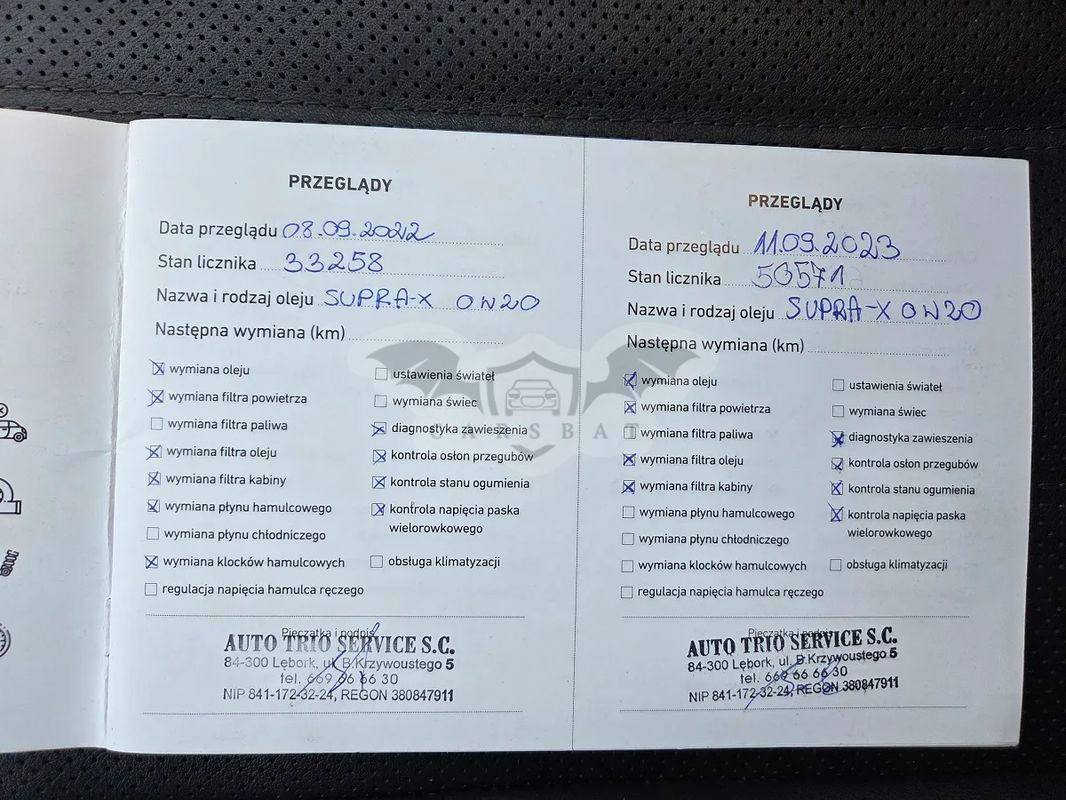 PRZEGLĄDY
Data przeglądu 08.09.2022
Stan licznika 33258
Nazwa i rodzaj oleju SUPRA-X 0W20
Następna wymiana (km)
wymiana oleju
wymiana filtra powietrza
wymiana filtra paliwa
wymiana filtra oleju
wymiana filtra kabiny
wymiana płynu hamulcowego
wymiana płynu chłodniczego
wymiana klocków hamulcowych
regulacja napięcia hamulca ręczego
ustawienia świateł
wymiana świec
diagnostyka zawieszenia
kontrola osłon przegubów
kontrola stanu ogumienia
kontrola napięcia paska
wielorowkowego
obsługa klimatyzacji
Pieczątka i podpis
AUTO TRIO SERVICE S.C.
84-300 Lębork, ul. B.Krzywoustego 5
tel. 669 66 66 30
NIP 841-172-32-24, REGON 380847911
PRZEGLĄDY
Data przeglądu 11.09.2023
Stan licznika 50571
Nazwa i rodzaj oleju SUPRA-X 0W20
Następna wymiana (km)
wymiana oleju
wymiana filtra powietrza
wymiana filtra paliwa
wymiana filtra oleju
wymiana filtra kabiny
wymiana płynu hamulcowego
wymiana płynu chłodniczego
wymiana klocków hamulcowych
regulacja napięcia hamulca ręczego
ustawienia świateł
wymiana świec
diagnostyka zawieszenia
kontrola osłon przegubów
kontrola stanu ogumienia
kontrola napięcia paska
wielorowkowego
obsługa klimatyzacji
Pieczątka i podpis
AUTO TRIO SERVICE S.C.
84-300 Lębork, ul. B.Krzywoustego 5
tel. 669 66 66 30
NIP 841-172-32-24, REGON 380847911
CARSBAT